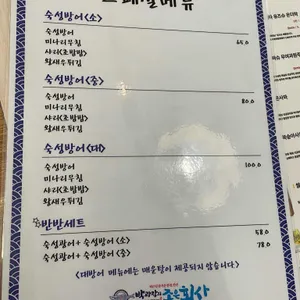 스페셜메뉴
숙성방어<소>
숙성방어
미나리무침
사리(초밥밥)
왕새우튀김
65.0
숙성방어<중>
숙성방어
미나리무침
사리(초밥밥)
왕새우튀김
80.0
숙성방어<대>
숙성방어
미나리무침
사리(초밥밥)
왕새우튀김
100.0
반반세트
숙성광어 + 숙성방어 <소> 68.0
숙성광어 + 숙성방어 <중> 78.0
<대방어 메뉴에는 매운탕이 제공되지 않습니다.>